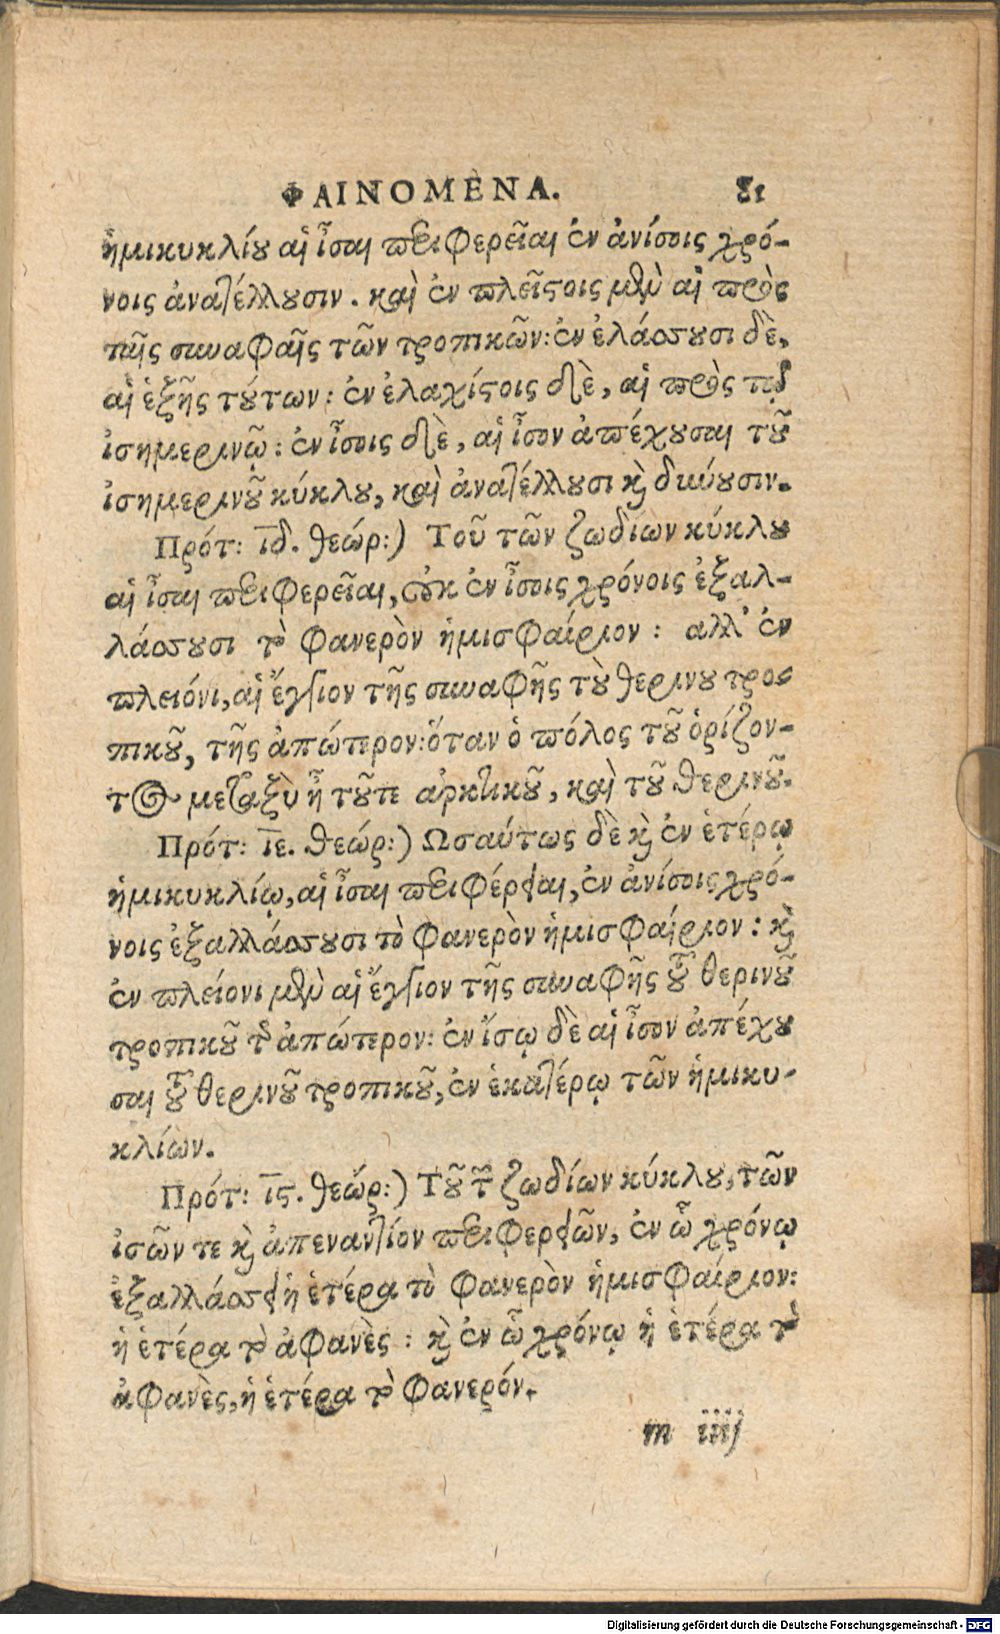 ΦΑΙΝΟΜΕΝΑ. 81
ἡμικυκλίου αἱ ἶσαι περιφερεῖαι ἐν ἀνίσοις χρό-
νοις ἀνατέλλουσιν. καὶ ἐν πλεῖστοις μὲν αἱ πρὸς
ταῖς συναφαῖς τῶν τροπικῶν: ἐν ἐλάσσουσι δὲ,
αἱ ἑξῆς τούτων: ἐν ἐλαχίστοις δὲ, αἱ πρὸς τῷ
ἰσημερινῷ: ἐν ἴσοις δὲ, αἱ ἶσον ἀπέχουσαι τοῦ
ἰσημερινοῦ κύκλου, καὶ ἀνατέλλουσι καὶ δύνουσιν.
Πρότ: ιδ. θεώρ:) Τοῦ τῶν ζωδίων κύκλου
αἱ ἶσαι περιφερεῖαι, οὐκ ἐν ἴσοις χρόνοις ἐξαλ-
λάσσουσι τὸ φανερὸν ἡμισφαίριον: αλλ' ἐν
πλειόνι, αἱ ἔγγιον τῆς συναφῆς τοὺ θερινου τρο-
πικοῦ, τῆς ἀπώτερον: ὅταν ὁ πόλος τοῦ ὁρίζον-
τος μεταξὺ ἦ τοῦτε ἀρκτικοῦ, καὶ τοῦ θερινοῦ.
Πρότ: ιε. θεώρ:) Ωσαύτως δὲ καὶ ἐν ἑτέρῳ
ἡμικυκλίῳ, αἱ ἶσαι περιφέρειαι, ἐν ἀνίσοις χρό-
νοις ἐξαλλάσσουσι τὸ φανερὸν ἡμισφαίριον: καὶ
ἐν πλείονι μὲν αἱ ἔγγιον τῆς συναφῆς τοῦ θερινοῦ
τροπικοῦ τῆς ἀπώτερον: ἐν ἴσῳ δὲ αἱ ἶσον ἀπέχου
σαι τοῦ θερινοῦ τροπικοῦ, ἐν ἑκατέρῳ τῶν ἡμικυ-
κλίων.
Πρότ: ις. θεώρ:) Τοῦ τῶν ζωδίων κύκλου, τῶν
ἰσῶν τε καὶ ἀπεναντίον περιφερειῶν, ἐν ᾧ χρόνῳ
ἐξαλλάσσει ἡ ἑτέρα τὸ φανερὸν ἡμισφαίριον:
ἡ ἑτέρα τὸ ἀφανὲς: καὶ ἐν ᾧ χρόνῳ ἡ ἑτέρα τὸ
ἀφανὲς, ἡ ἑτέρα τὸ φανερόν.
m iiij
Digitalisierung gefördert durch die Deutsche Forschungsgemeinschaft - DFG